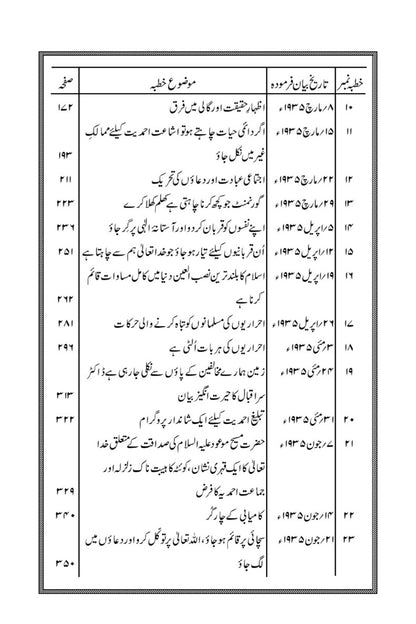 خطبہ نمبر تاریخ بیان فرمودہ موضوع خطبہ صفحہ
۱۰ ۸؍مارچ ۱۹۳۵ء اظہارِ حقیقت اور گالی میں فرق ۱۷۲
۱۱ ۱۵؍مارچ ۱۹۳۵ء اگر دائمی حیات چاہتے ہو تو اشاعت احمدیت کیلئے ممالکِ
غیر میں نکل جاؤ ۱۹۳
۱۲ ۲۲؍مارچ ۱۹۳۵ء اجتماعی عبادت اور دعاؤں کی تحریک ۲۱۱
۱۳ ۲۹؍مارچ ۱۹۳۵ء گورنمنٹ جو کچھ کرنا چاہتی ہے کھلم کھلا کرے ۲۲۳
۱۴ ۵؍اپریل ۱۹۳۵ء اپنے نفسوں کو قربان کر دو اور آستانۂ الٰہی پر گر جاؤ ۲۳۶
۱۵ ۱۲؍اپریل ۱۹۳۵ء اُن قربانیوں کیلئے تیار ہو جاؤ جو خدا تعالیٰ ہم سے چاہتا ہے ۲۵۱
۱۶ ۱۹؍اپریل ۱۹۳۵ء اسلام کا بلند ترین نصب العین دنیا میں کامل مساوات قائم
کرنا ہے ۲۶۲
۱۷ ۲۶؍اپریل ۱۹۳۵ء احراریوں کی مسلمانوں کو تباہ کرنے والی حرکات ۲۸۱
۱۸ ۳؍مئی ۱۹۳۵ء احراریوں کی ہر بات اُلٹی ہے ۲۹۶
۱۹ ۲۴؍مئی ۱۹۳۵ء زمین ہمارے مخالفین کے پاؤں سے نکلی جا رہی ہے ڈاکٹر
سر اقبال کا حیرت انگیز بیان ۳۱۳
۲۰ ۳۱؍مئی ۱۹۳۵ء تبلیغ احمدیت کیلئے ایک شاندار پروگرام ۳۲۲
۲۱ ۷؍جون ۱۹۳۵ء حضرت مسیح موعود علیہ السلام کی صداقت کے متعلق خدا
تعالیٰ کا ایک قہری نشان، کوئٹہ کا ہیبت ناک زلزلہ اور
جماعت احمدیہ کا فرض ۳۲۹
۲۲ ۱۴؍جون ۱۹۳۵ء کامیابی کے چار گُر ۳۴۰
۲۳ ۲۱؍جون ۱۹۳۵ء سچائی پر قائم ہو جاؤ، اللہ تعالیٰ پر توکّل کرو اور دعاؤں میں
لگ جاؤ ۳۵۰